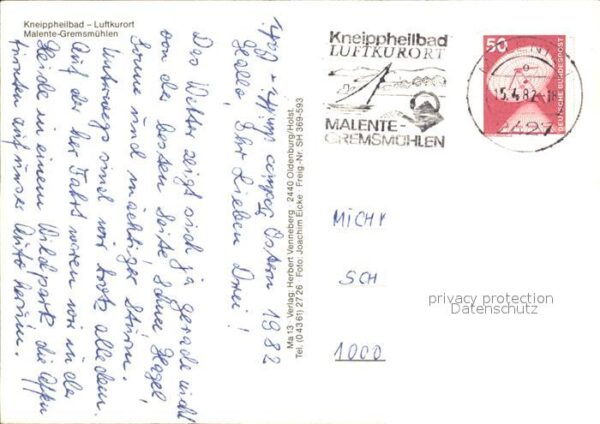 Kneippheilbad – Luftkurort
Malente-Gremsmühlen
Ostern 1982
Hallo, Ihr Lieben Drei!
Das Wetter zeigt sich ja gerade nicht
von der besten Seite. Schnee, Hagel,
Sonne und mächtiger Sturm.
Unterwegs sind wir trotz alledem.
Auf der her Fahrt waren wir in der
Heide in einem Wildpark die Affen
turnten auf unser Auto herum.
Ma 13 Verlag: Herbert Venneberg 2440 Oldenburg/Holst.
Tel. (0 43 61) 27 26 Foto: Joachim Eicke Freig.-Nr. SH 369-593
Kneippheilbad
LUFTKURORT
MALENTE-
GREMSMÜHLEN
15.4.82
2427
50
DEUTSCHE BUNDESPOST
MICHY
SCH
privacy protection
Datenschutz
1000